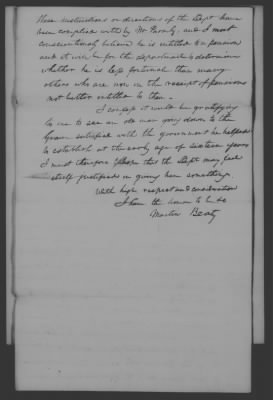 Those instructions or directions of the Dept have
been complied with by Mr and I most
conscientiously believe he is entitled to a pension
and it will be for the department to determine
whether he is less fortunate than many
others who are now in the receipt of pensions
not better entitled to them.
I confess it would be gratifying
to me to see an old man going down to the
Grave satisfied with the government he helped
to establish at the early age of sixteen years
I must therefore hope that the Dept may feel
itself justified in giving him something.
With high respect and consideration
I have the honor to be &c
Martin Beaty